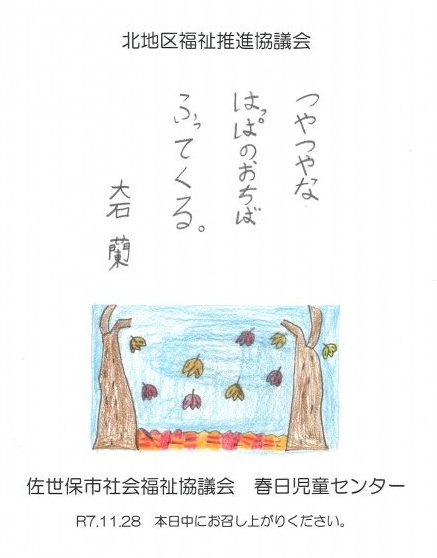 北地区福祉推進協議会
つやつやな
はっぱのおちば
ふってくる。
大石 蘭
佐世保市社会福祉協議会 春日児童センター
R7.11.28 本日中にお召し上がりください。